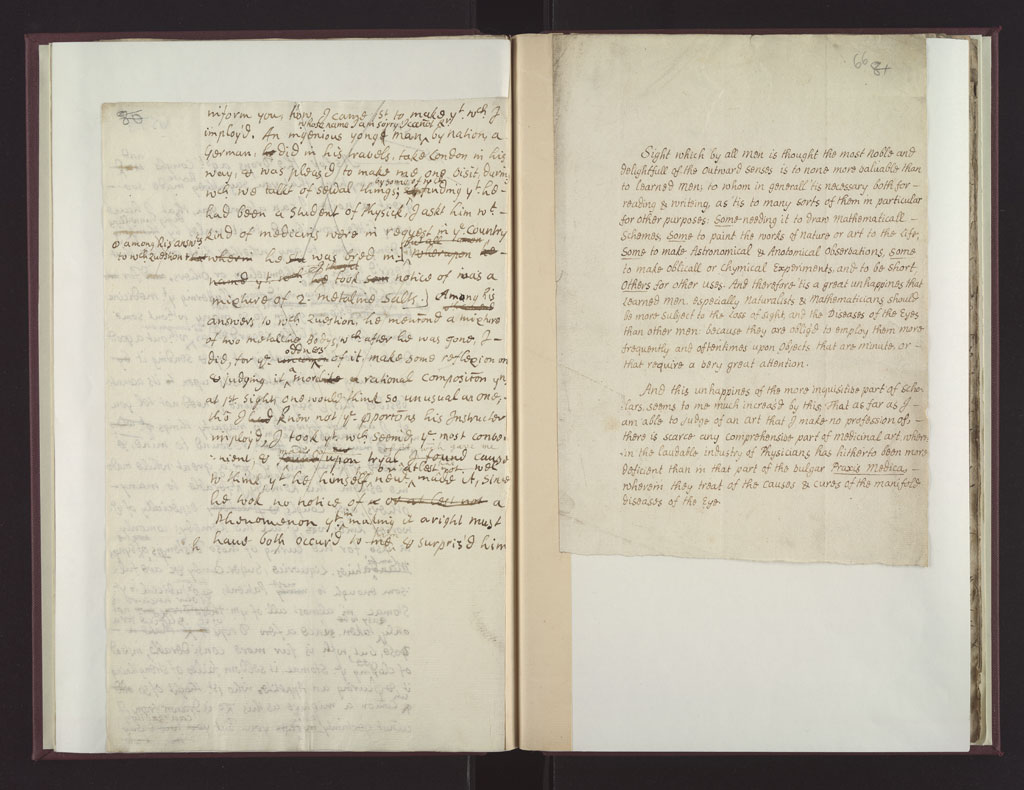 86
inform you how I came 1st to make yt. wch I
whose name I am sorry I cañot
imploy'd. An ingenious yonge man, by nation a
German, did in his travels take London in his
way, & was pleas'd to make me one visit, during
wch we talkt of sevral things;
finding yt he
had been a Student of Physick, I askt him wt
kind of medecins were in request in ye Country
among his answ.rs
to wch Question wherein he was bred in
whereupon he
nam'd yt wch he took notice of was a
mixture of 2 metalline Salts. Among his
answers to wch Question he mention'd a mixture
of two metalline Bodys, wch after he was gone, I
oddness
did, for ye of it, make some reflexion on
& judging it more a rational composition yn
at 1st sight one would think so unusual an one,
tho I knew not ye Proportions his Instructer
imploy'd, I took yt wch seem'd ye most conve-
nient, & upon tryal, I found cause
to think yt he himself, never made it, since
or at lest not well
he took no notice of or at lest not a
Phenomenon yt making it aright must
have both occur'd to me & surpris'd him
66 81
Sight which by all men is thought the most noble and
delightfull of the outward senses is to none more valuable than
to learned men, to whom in generall tis necessary both for
reading & writeing, as tis to many sorts of them in particular
for other purposes; Some needing it to draw Mathematicall
Schemes, Some to paint the works of nature or art to the life,
Some to make Astronomical & Anatomical Observations, some
to make Opticall or Chymical Experiments, and to be short
Others for other uses. And therefore tis a great unhappines that
learned men, especially Naturalists & Mathematicians should
be more subject to the loss of sight and the Diseases of the Eyes
than other men because they are oblig'd to employ them more
frequently and oftentimes upon Objects that are minute, or
that require a very great attention.
And this unhappines of the more inquisitive part of Scho-
lars, seems to me much increas'd by this, That as far as I
am able to judge of an art that I make no profession of,
there is scarce any comprehensive part of medicinal art, where-
in the laudable industry of Physicians has hitherto been more
deficient than in that part of the vulgar Praxis Medica,
wherein they treat of the causes & cures of the manifold
diseases of the Eye